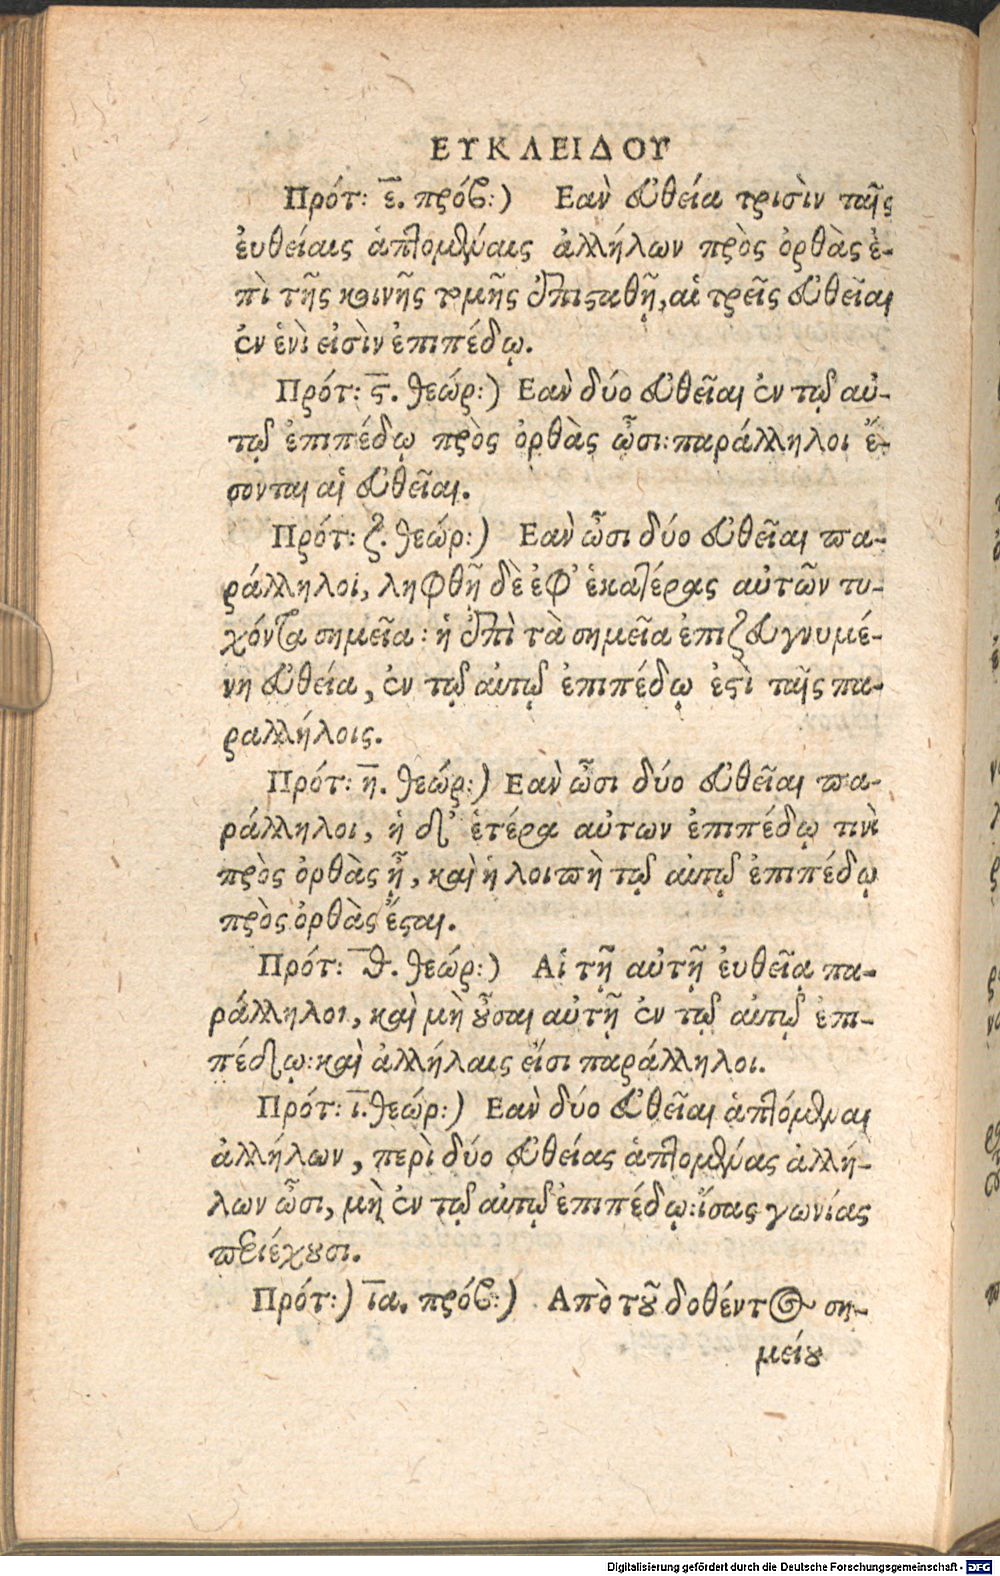 ΕΥΚΛΕΙΔΟΥ
Πρότ: ε̅. πρόβ:) Εαν ὐθεία τρισὶν ταῖς
ἐυθείαις ἁπτομέναις ἀλλήλων πρὸς ὀρθὰς ἐ-
πὶ τῆς κοινῆς τομῆς ἐπισταθῇ, αἱ τρεῖς εὐθεῖαι
ἐν ἑνὶ εἰσὶν ἐπιπέδῳ.
Πρότ: ϛ̅. θεώρ:) Εαν δύο εὐθεῖαι ἐν τῷ αὐ-
τῷ ἐπιπέδῳ πρὸς ὀρθὰς ὦσι: παράλληλοι ἔ-
σονται αἱ εὐθεῖαι.
Πρότ: ζ̅. θεώρ:) Εαν ὦσι δύο εὐθεῖαι πα-
ράλληλοι, ληφθῇ δὲ ἐφ’ ἑκατέρας αὐτῶν τυ-
χόντα σημεῖα: ἡ ἐπὶ τὰ σημεῖα ἐπιζευγνυμέ-
νη εὐθεία, ἐν τῷ αὐτῷ ἐπιπέδῳ ἐστὶ ταῖς πα-
ραλλήλοις.
Πρότ: η̅. θεώρ:) Εαν ὦσι δύο εὐθεῖαι πα-
ράλληλοι, ἡ δ’ ἑτέρα αὐτων ἐπιπέδῳ τινὶ
πρὸς ὀρθὰς ᾖ, καὶ ἡ λοιπὴ τῷ αὐτῷ ἐπιπέδῳ
πρὸς ὀρθὰς ἔσται.
Πρότ: θ̅. θεώρ:) Αἱ τῇ αὐτῇ ἐυθείᾳ πα-
ράλληλοι, καὶ μὴ οὖσαι αὐτῇ ἐν τῷ αὐτῷ ἐπι-
πέδῳ: καὶ ἀλλήλαις εἴσι παράλληλοι.
Πρότ: ι̅. θεώρ:) Εαν δύο εὐθεῖαι ἁπτόμεναι
ἀλλήλων, περὶ δύο εὐθείας ἁπτομένας ἀλλή-
λων ὦσι, μὴ ἐν τῷ αὐτῷ ἐπιπέδῳ: ἴσας γωνίας
περιέχουσι.
Πρότ:) ια̅. πρόβ:) Απὸ τοῦ δοθέντος ση-
μείου
Digitalisierung gefördert durch die Deutsche Forschungsgemeinschaft - DFG